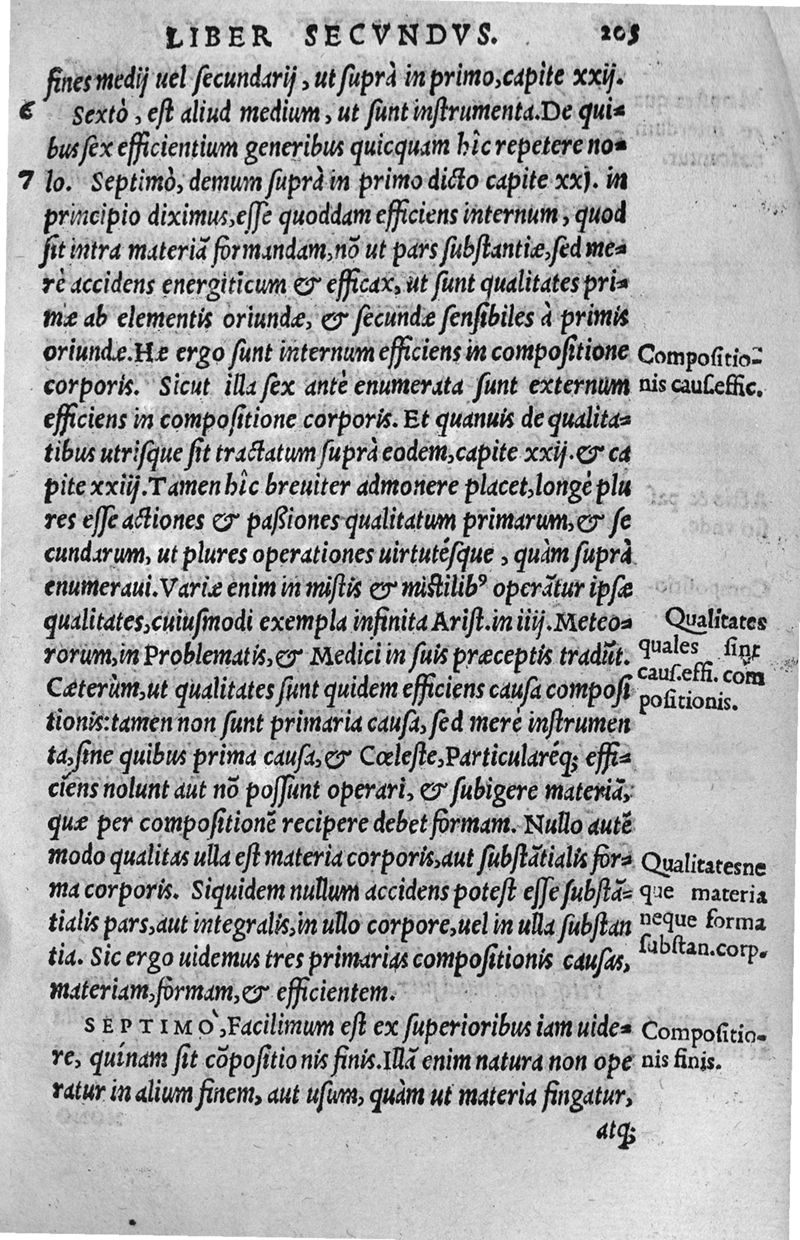 LIBER SECVNDVS. 205
fines medij uel secundarij, ut suprà in primo, capite xxij.
6 Sextò, est aliud medium, ut sunt instrumenta. De qui-
bus sex efficientium generibus quicquam hîc repetere no-
7 lo. Septimò, demum suprà in primo dicto capite xxj. in
principio diximus, esse quoddam efficiens internum, quod
sit intra materiã formandam, nõ ut pars substantiæ, sed me-
rè accidens energiticum & efficax, ut sunt qualitates pri-
mæ ab elementis oriundæ, & secundæ sensibiles à primis
oriundæ. Hæ ergo sunt internum efficiens in compositione
corporis. Sicut illa sex antè enumerata sunt externum
efficiens in compositione corporis. Et quanuis de qualita-
tibus utrisque sit tractatum suprà eodem, capite xxij. & ca
pite xxiij. Tamen hîc breuiter admonere placet, longè plu
res esse actiones & passiones qualitatum primarum, & se
cundarum, ut plures operationes uirtutésque, quàm suprà
enumeraui. Variæ enim in mistis & mistilibꝰ operãtur ipsæ
qualitates, cuiusmodi exempla infinita Arist. in iiij. Meteo-
rorum, in Problematis, & Medici in suis præceptis tradũt.
Cæterùm, ut qualitates sunt quidem efficiens causa composi
tionis: tamen non sunt primaria causa, sed merè instrumen
ta, sine quibus prima causa, & Cœleste, Particularéq; effi-
ciens nolunt aut nõ possunt operari, & subigere materiã,
quæ per compositionẽ recipere debet formam. Nullo autẽ
modo qualitas ulla est materia corporis, aut substãtialis for-
ma corporis. Siquidem nullum accidens potest esse substã-
tialis pars, aut integralis, in ullo corpore, uel in ulla substan
tia. Sic ergo uidemus tres primarias compositionis causas,
materiam, formam, & efficientem.
SEPTIMÒ, Facilimum est ex superioribus iam uide-
re, quínam sit cõpositionis finis. Illã enim natura non ope
ratur in alium finem, aut usum, quàm ut materia fingatur,
atq;
Compositio-
nis caus. effic.
Qualitates
quales sint
caus. effi. com
positionis.
Qualitates ne
que materia
neque forma
substan. corp.
Compositio-
nis finis.